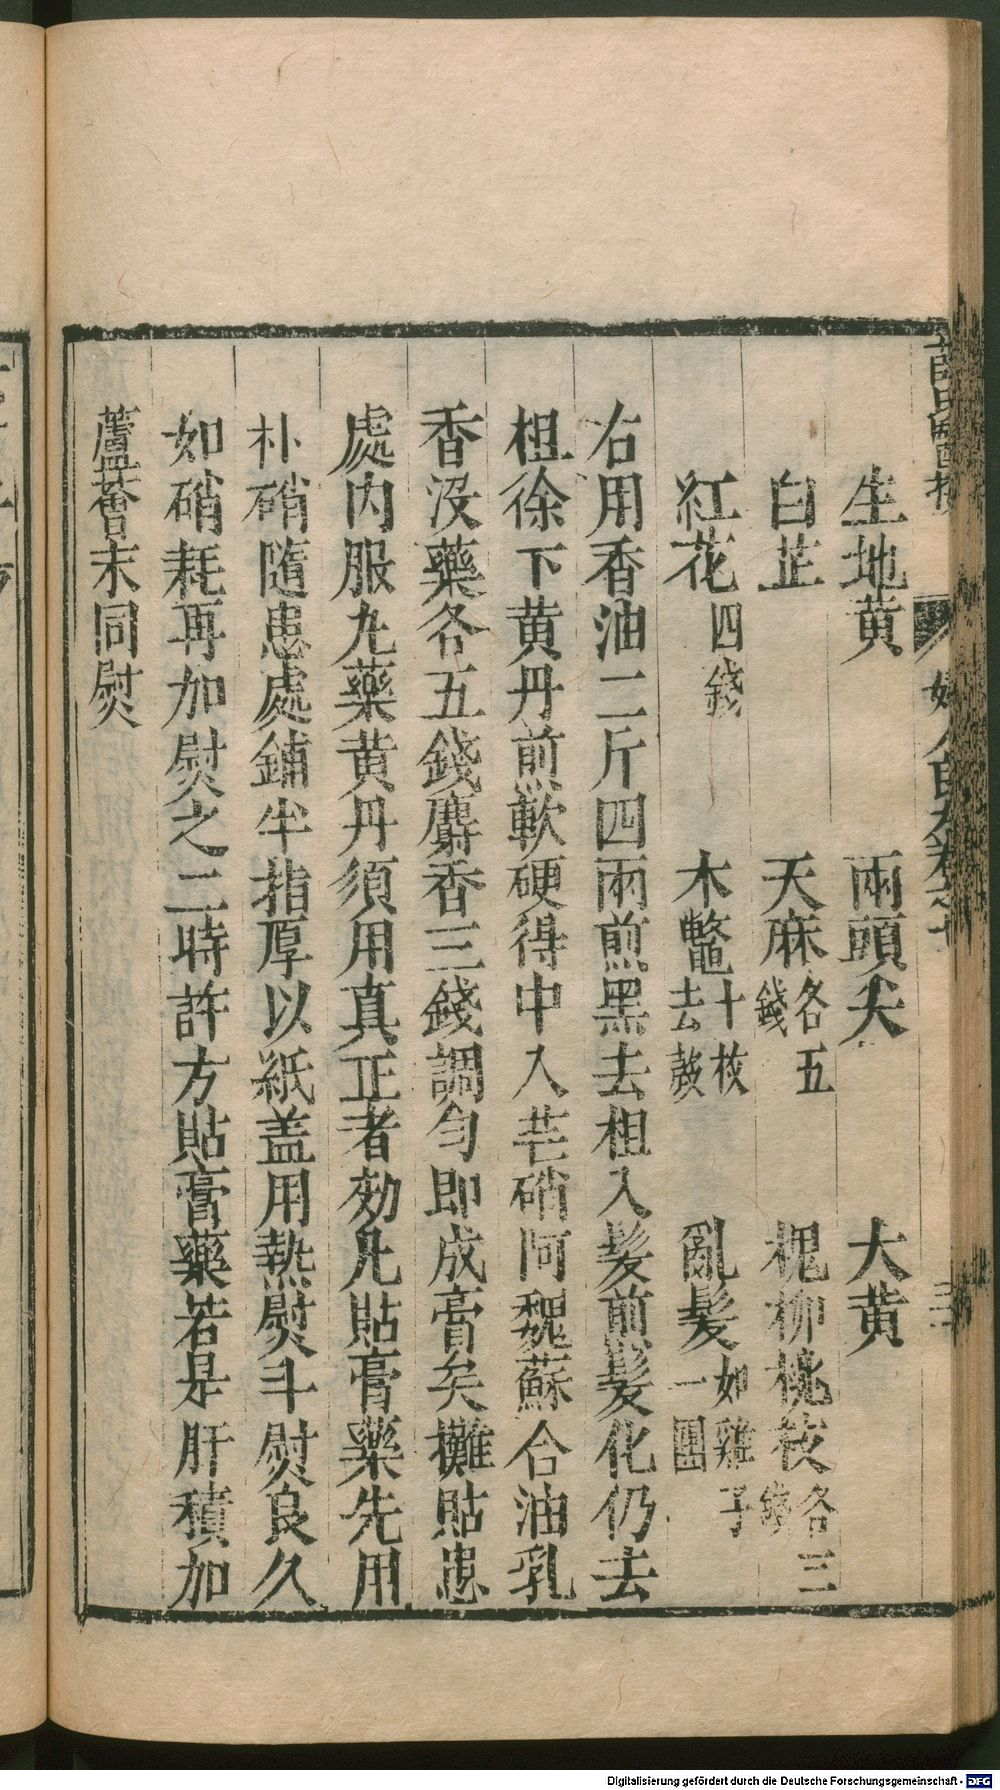 生地黄 兩頭尖 大黄
白芷 天麻各五錢 槐柳桃枝各三錢
紅花四錢 木鼈十枚去殼 亂髮如雞子一團
右用香油二斤四兩煎黑去柤入髮煎髮化仍去
柤徐下黄丹煎軟硬得中入芒硝阿魏蘇合油乳
香没藥各五錢麝香三錢調勻即成膏矣攤貼患
處内服丸藥黄丹須用真正者効凡貼膏藥先用
朴硝隨患處鋪半指厚以紙盖用熱熨斗熨良久
如硝耗再加熨之二時許方貼膏藥若是肝積加
蘆薈末同熨
Digitalisierung gefördert durch die Deutsche Forschungsgemeinschaft - DFG